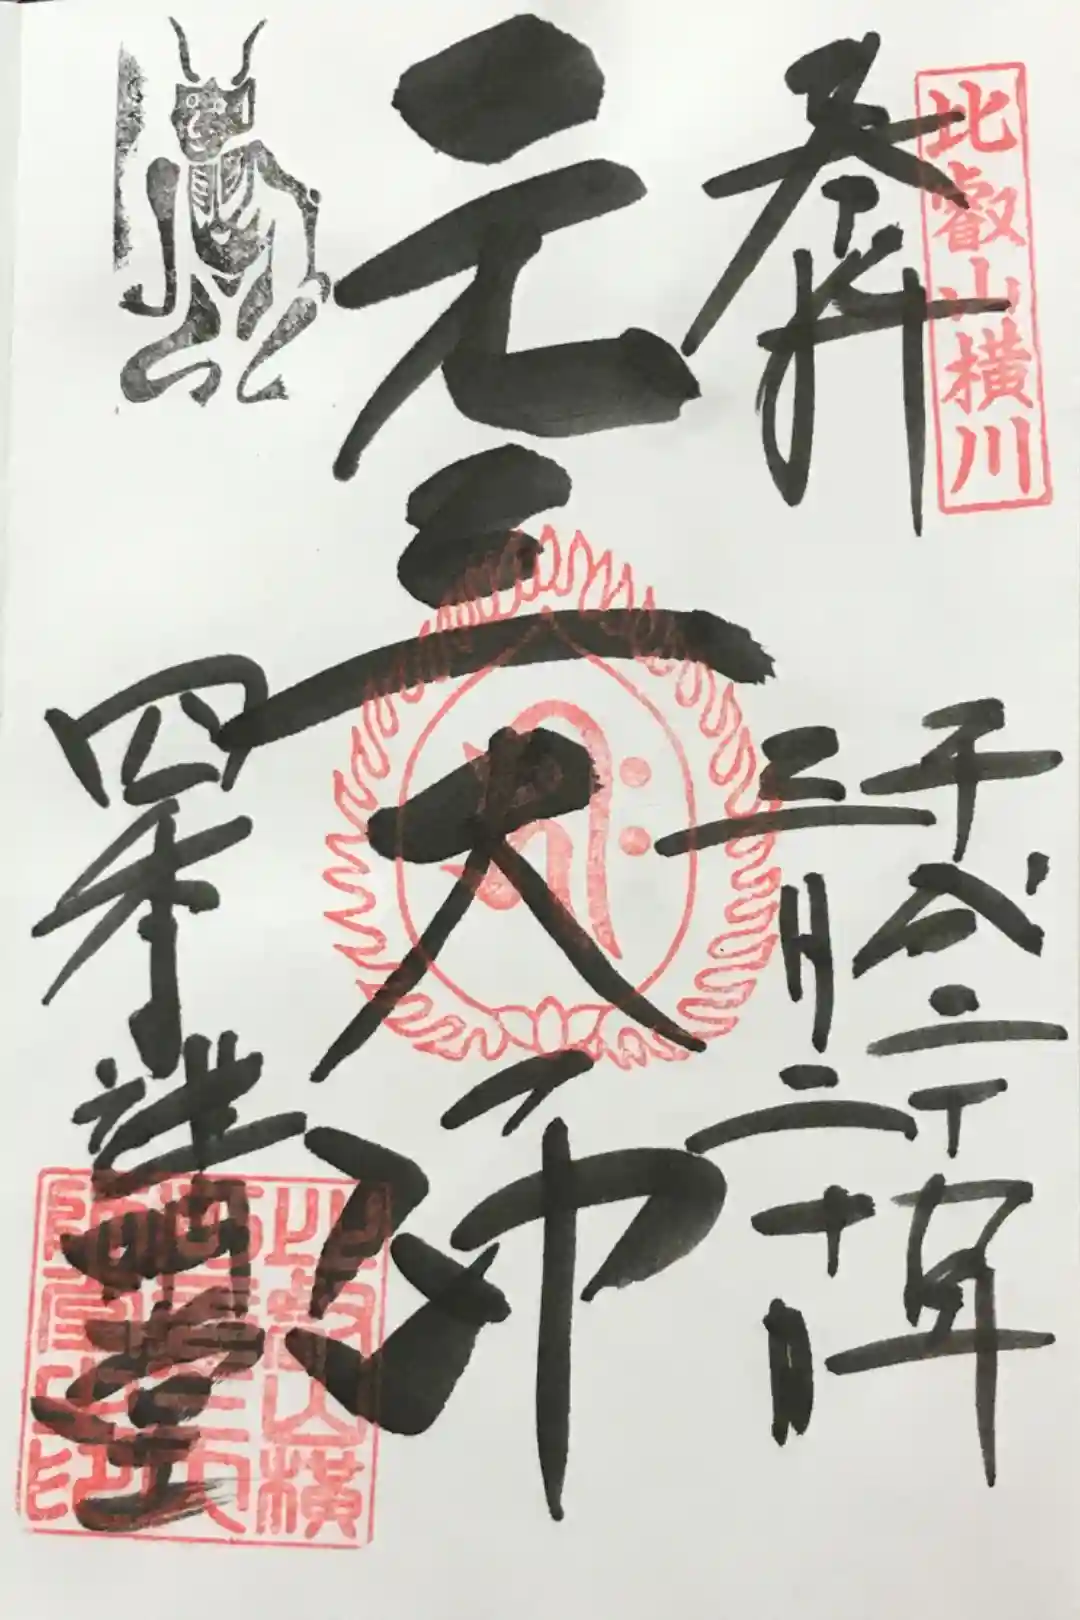 比叡山横川
奉拝
平成二十年
三月二十日
元三大師
四季講堂
比叡山横
川元三大
師堂之印